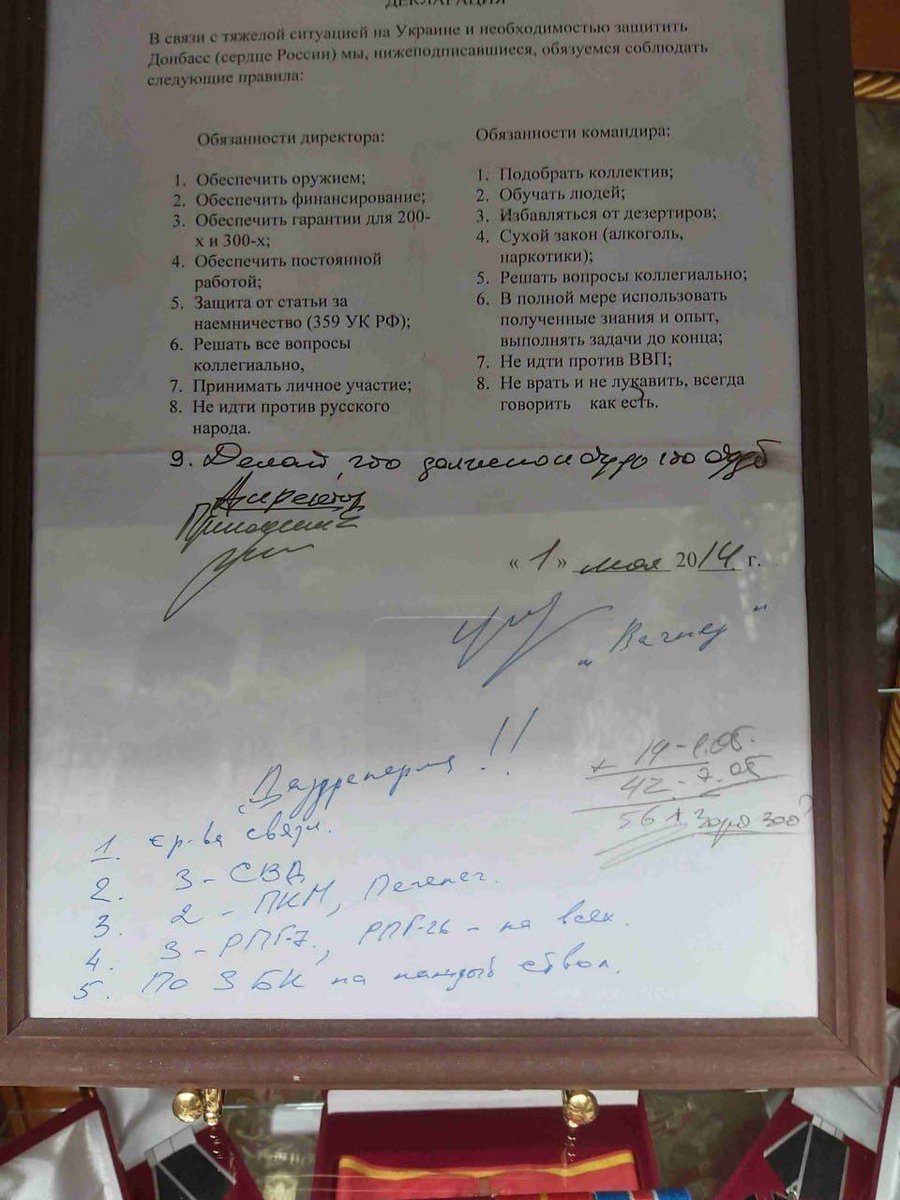 ДЕКЛАРАЦИЯ
В связи с тяжелой ситуацией на Украине и необходимостью защитить
Донбасс (сердце России) мы, нижеподписавшиеся, обязуемся соблюдать
следующие правила:
Обязанности директора:
1. Обеспечить оружием;
2. Обеспечить финансирование;
3. Обеспечить гарантии для 200-
х и 300-х;
4. Обеспечить постоянной
работой;
5. Защита от статьи за
наемничество (359 УК РФ);
6. Решать все вопросы
коллегиально,
7. Принимать личное участие;
8. Не идти против русского
народа.
Обязанности командира:
1. Подобрать коллектив;
2. Обучать людей;
3. Избавляться от дезертиров;
4. Сухой закон (алкоголь,
наркотики);
5. Решать вопросы коллегиально;
6. В полной мере использовать
полученные знания и опыт,
выполнять задачи до конца;
7. Не идти против ВВП;
8. Не врать и не лукавить, всегда
говорить как есть.
9. Делай, что должно и будь что будет
Директор
Пригожин
«1» мая 2014 г.
„Вагнер"
!!
+ 14 - 1.05.
42 - 7.05
56
1. ср-ва связи.
2. 3 - СВД
3. 2 - ПКМ, Печенег.
4. 3 - РПГ-7, РПГ-26 - на всех.
5. По 3 БК на каждый ствол.